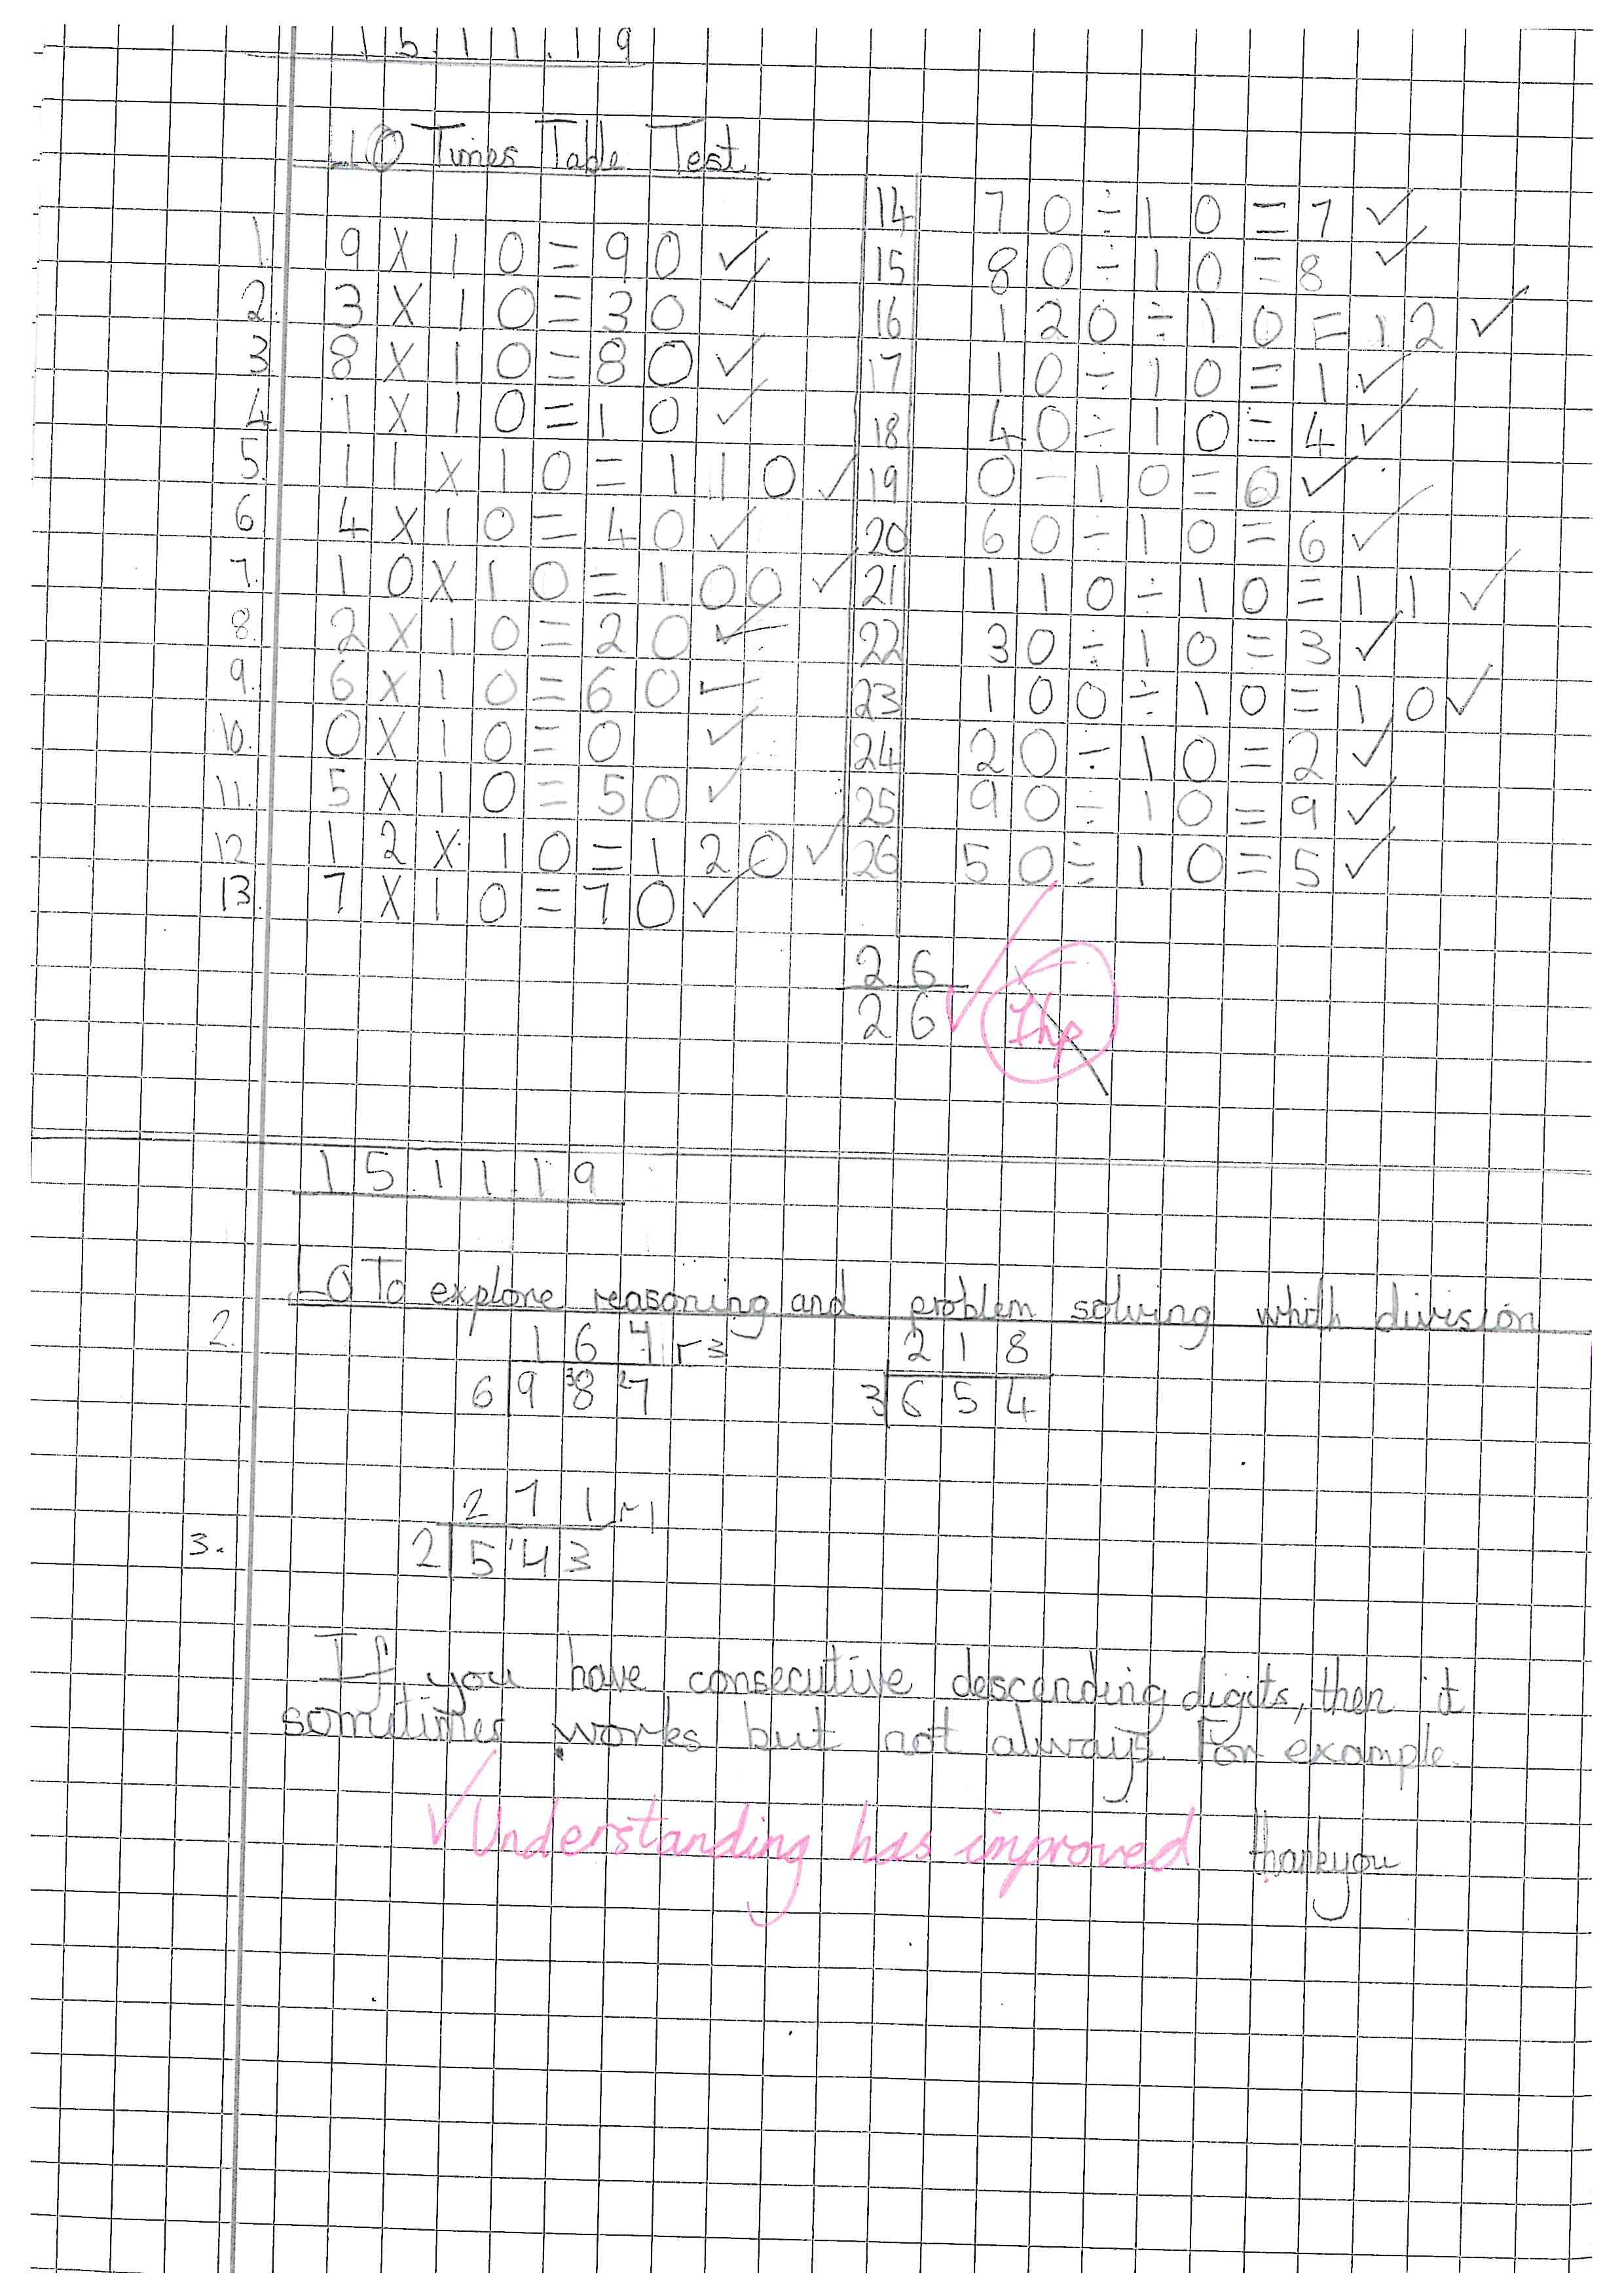 15.11.19
LO Times Table Test
1. 9×10=90 ✓
2. 3×10=30 ✓
3 8×10=80 ✓
4 1×10=10 ✓
5. 11×10=110 ✓
6 4×10=40 ✓
7. 10×10=100 ✓
8. 2×10=20 ✓
9. 6×10=60 ✓
10. 0×10=0 ✓
11. 5×10=50 ✓
12 12×10=120 ✓
13. 7×10=70 ✓
14 70÷10=7 ✓
15 80÷10=8 ✓
16 120÷10=12 ✓
17 10÷10=1 ✓
18 40÷10=4 ✓
19 0-10=0 ✓
20 60÷10=6 ✓
21 110÷10=11 ✓
22 30÷10=3 ✓
23 100÷10=10 ✓
24 20÷10=2 ✓
25 90÷10=9 ✓
26 50÷10=5 ✓
26
26 ✓ 1hp
15.11.19
LO To explore reasoning and problem solving whith division
2. 164 r3 218
6 9 8 27 3 654
271 r1
3. 2 5 14 3
If you have consecutive descending digits, then it
sometimes works but not always. For example.
✓ Understanding has improved thankyou